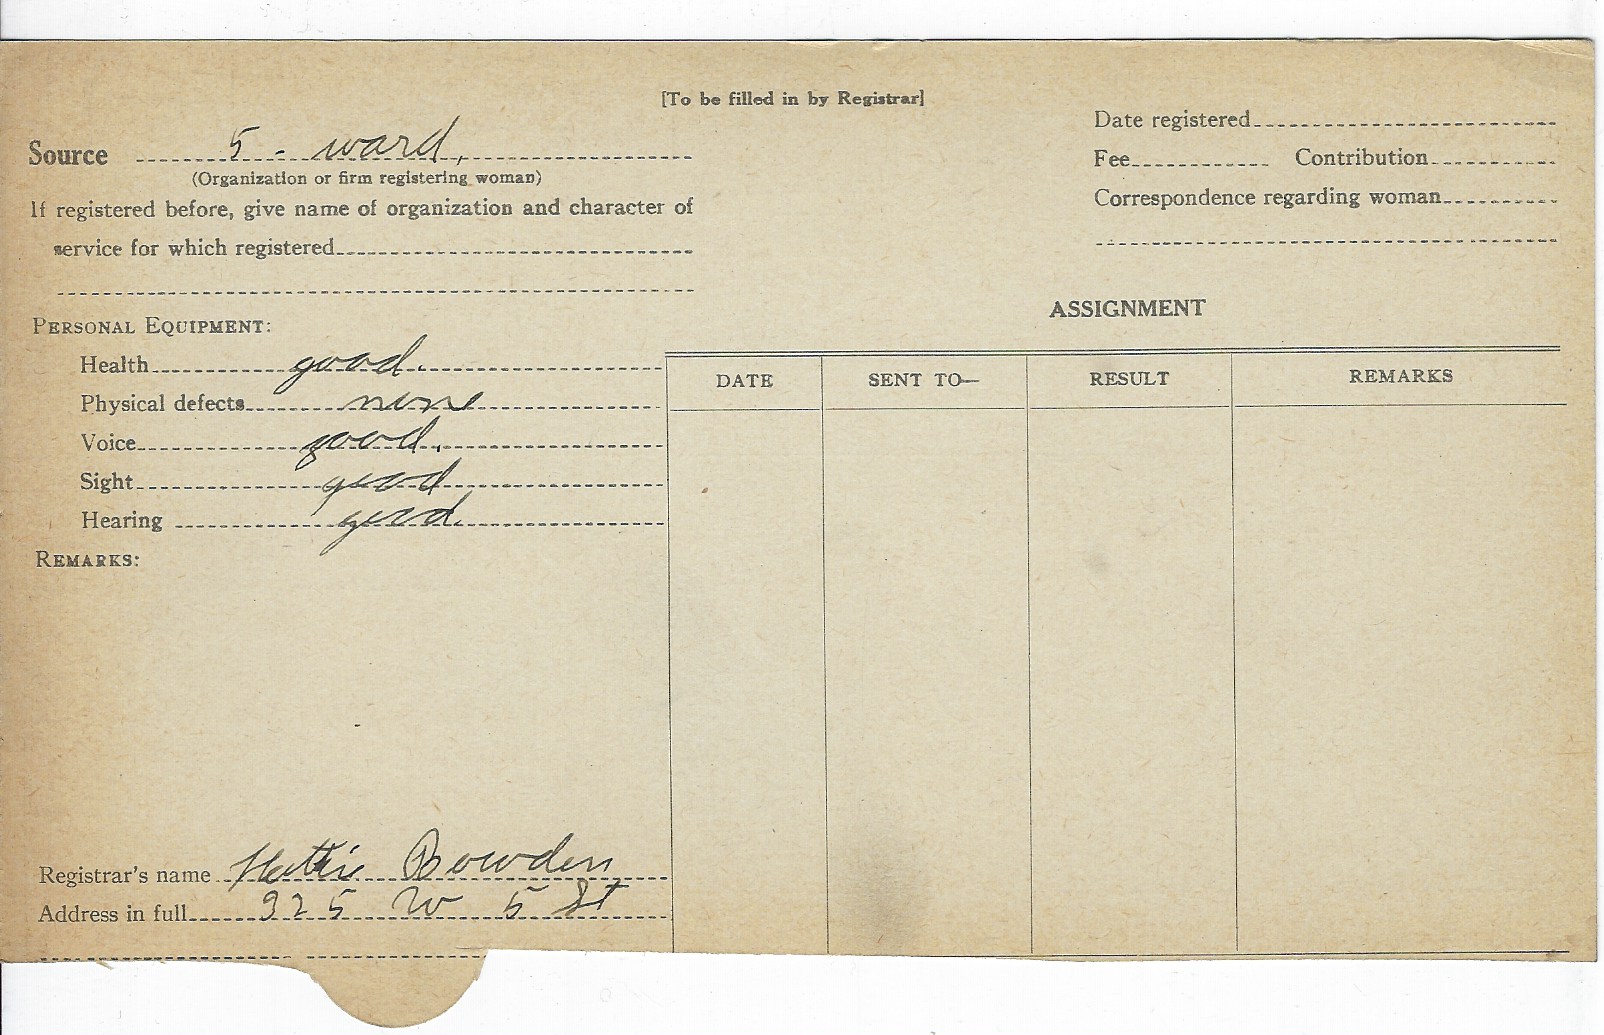 [To be filled in by Registrar]
Source 5 - ward,
(Organization or firm registering woman)
If registered before, give name of organization and character of
service for which registered
Date registered
Fee Contribution
Correspondence regarding woman
PERSONAL EQUIPMENT:
Health good.
Physical defects none
Voice good.
Sight good
Hearing good.
REMARKS:
Registrar's name Hattie Bowden
Address in full 925 W 5 St
ASSIGNMENT
DATE SENT TO— RESULT REMARKS